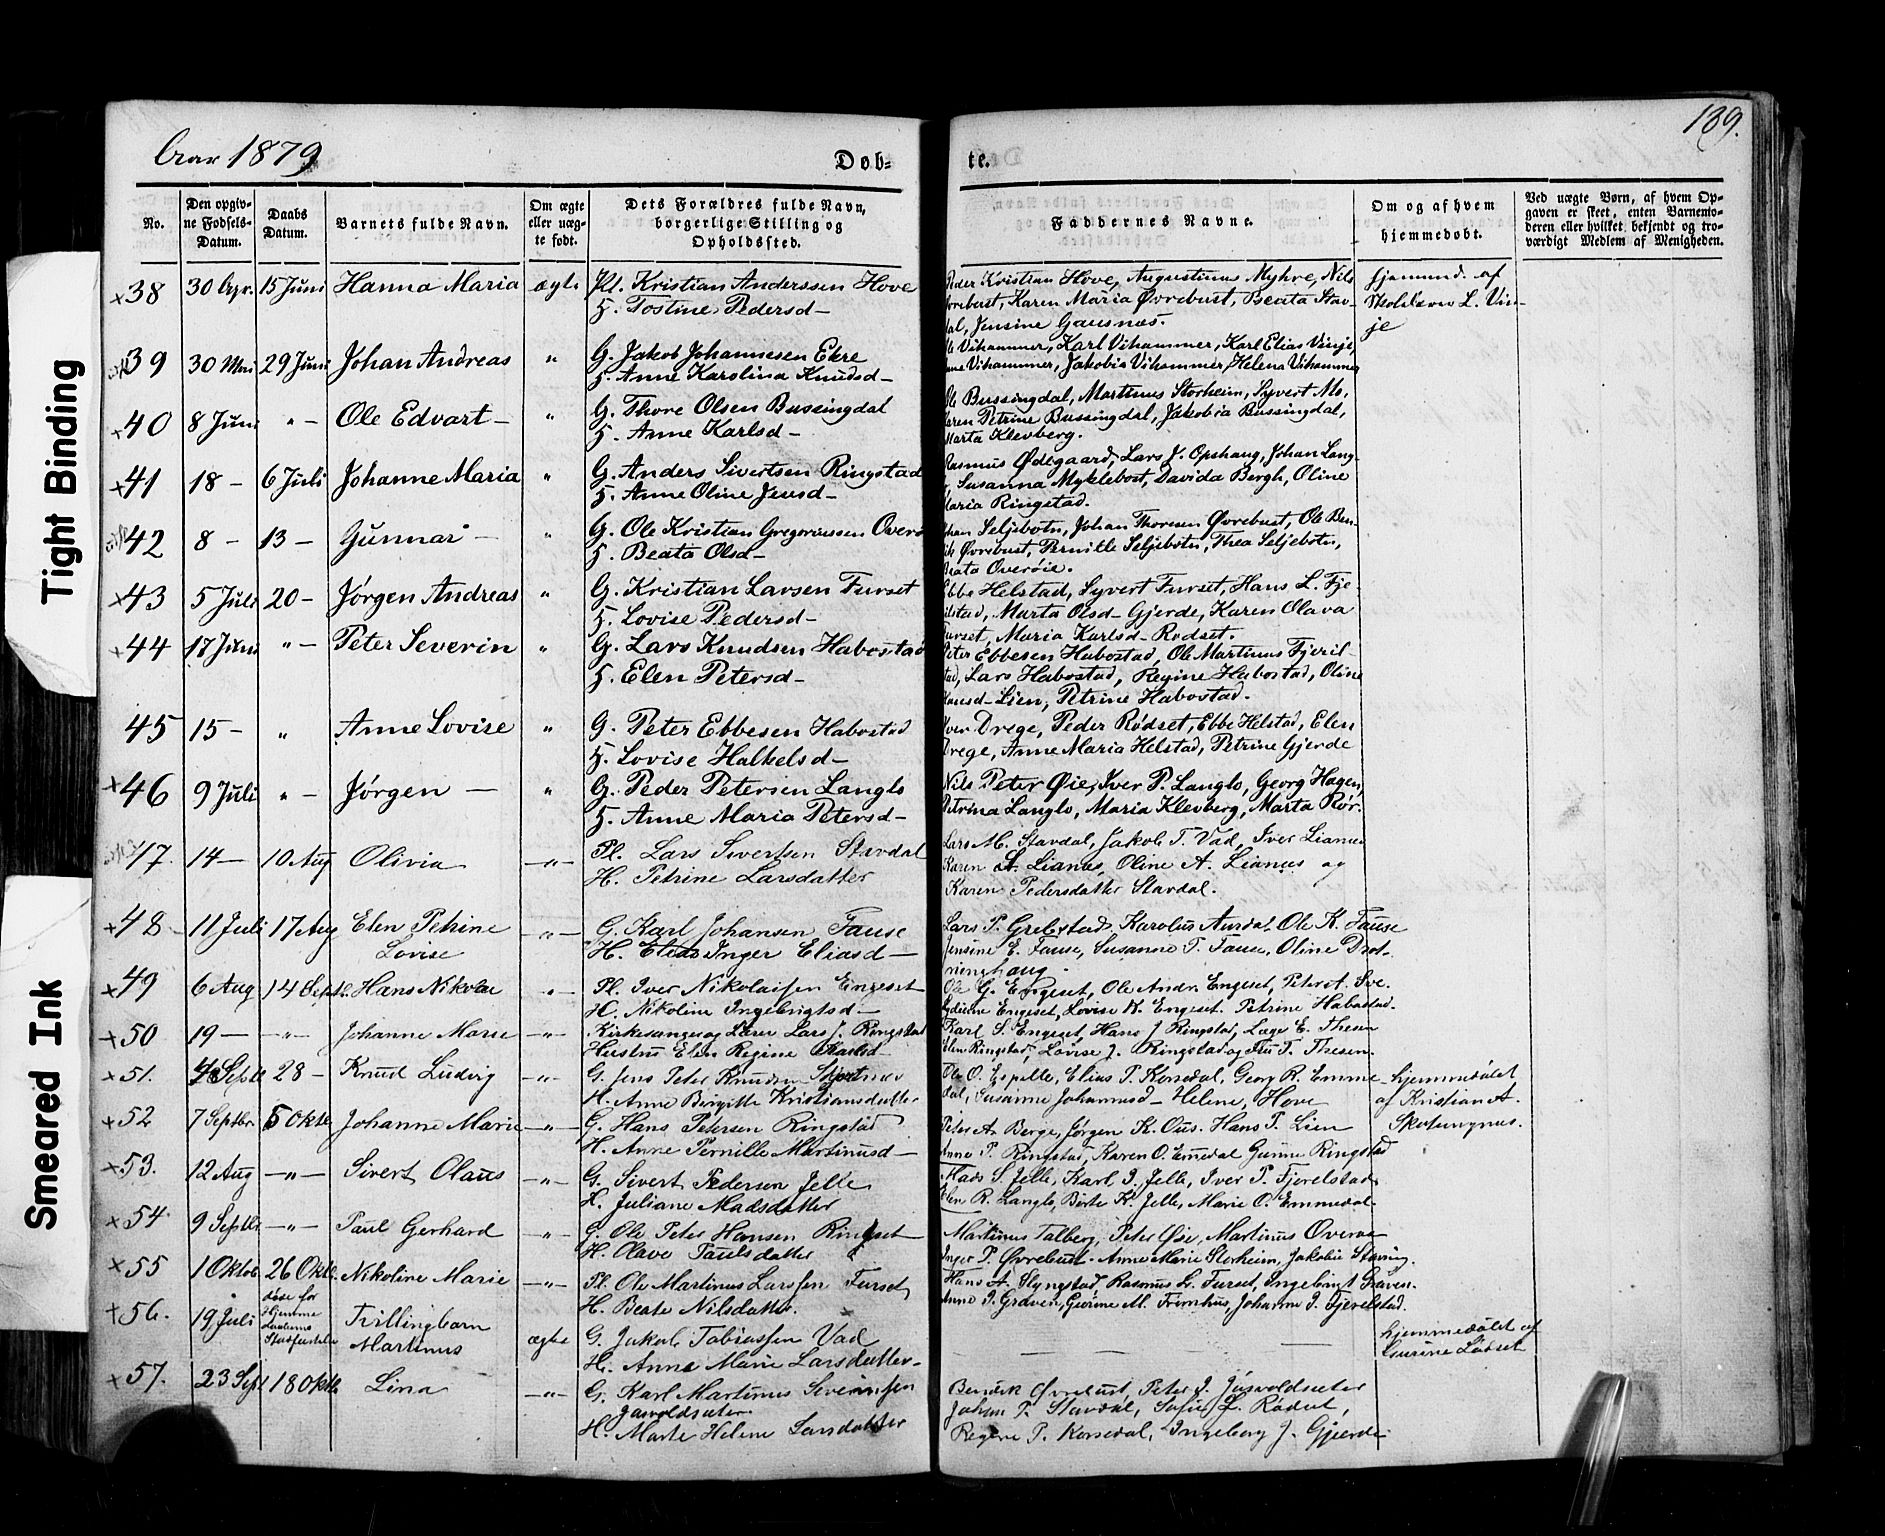 Aar 1879
Døb=
te.
189.
Tight Binding
Smeared Ink
No.
Den opgiv-
ne Fødsels-
Datum.
Daabs
Datum.
Barnets fulde Navn.
Om ægte
eller uæg-
te født.
Dets Forældres fulde Navn,
borgerlige Stilling og
Opholdssted.
Faddernes Navne.
Om og af hvem
hjemmedøbt.
Ved uægte Børn, af hvem Op-
gaven er skeet, enten Barnemo-
deren eller hvilket bekjendt og tro-
værdigt Medlem af Menigheden.
38 30 Apr. 15 Juni Hanna Maria ægte Pl. Kristian Anderssen Hove
H. Tostine Pedersd-
Peder Kristian Hove, Augustinus Myhre, Nils
Øvrebust, Karen Maria Øvrebust, Beata Stav-
dal, Jensine Gausnæs.
hjemmed. af
Skolelærer L. Vin-
je
39 30 Mai 29 Juni Johan Andreas " G. Jakob Johannesen Ekre
H. Anne Karolina Knudsd-
Vihammer, Karl Vihammer, Karl Elias Vinje,
Vihammer, Jakobia Vihammer, Helena Vihammer
40 8 Juni " - Ole Edvart - " G. Thore Olsen Bussingdal
H. Anne Karlsd-
Ole Bussingdal, Martinus Storheim, Syvert Mo,
Karen Petrine Bussingdal, Jakobia Bussingdal,
Marta Klevberg.
41 18 - 6 Juli Johanne Maria " G. Anders Sivertsen Ringstad
H. Anne Oline Jensd-
Rasmus Ødegaard, Lars J. Opshaug, Johan Lang-
Susanna Myklebost, Davida Bergh, Oline
Maria Ringstad.
42 8 - 13 - Gunnar - " G. Ole Kristian Gregoriussen Overø
H. Beata Olsd-
Johan Seljebotn, Johan Thoresen Øvrebust, Ole Ben-
Øvrebust, Pernille Seljebotn, Thea Seljebotn,
Beata Overøie.
43 5 Juli 20 - Jørgen Andreas " G. Kristian Larsen Furset
H. Lovise Pedersd-
Ebbe Helstad, Syvert Furset, Hans L. Fje-
rilstad, Marta Olsd- Gjerde, Karen Olava
Furset, Maria Karlsd- Rødset.
44 17 Juni " - Peter Severin " G. Lars Knudsen Habostad
H. Elen Petersd-
Peter Ebbesen Habostad, Ole Martinus Fjeril-
stad, Lars Habostad, Regine Habostad, Oline
Hansd- Lien, Petrine Habostad.
45 15 - " Anne Lovise " G. Peter Ebbesen Habostad
H. Lovise Halkelsd-
Iver Drege, Peder Rødset, Ebbe Helstad, Elen
Drege, Anne Maria Helstad, Petrine Gjerde
46 9 Juli " - Jørgen - " G. Peder Petersen Langlo
H. Anne Maria Petersd-
Nils Peter Øie, Iver P. Langlo, Georg Hagen,
Petrina Langlo, Maria Klevberg, Marta Rør.
47. 14 - 10 Aug Olivia - " - Pl. Lars Sivertsen Stavdal
H. Petrine Larsdatter
Lars M. Stavdal, Jakob T. Vad, Iver Lianæs
Karen A. Lianæs, Oline A. Lianæs og
Karen Pedersdatter Stavdal.
48. 11 Juli 17 Aug Elen Petrine
Lovise - " - G. Karl Johansen Fause
H. Elias Inger Eliasd-
Lars P. Grebstad, Karolus Aurdal, Ole K. Fause
Jensine E. Fause, Susanne T. Fause, Oline Drot-
ninghaug.
49 6 Aug 14 Septb. Hans Nikolai " Pl. Iver Nikolaisen Engeset
H. Nikoline Ingebrigtsd-
Ole G. Engeset, Ole Andr. Engeset, Peter A. Sve.
Engeset, Lovise K. Engeset. Petrine Habostad.
50 19 - - " - Johanne Marie - " - Kirkesanger og Lærer Lars J. Ringstad
Hustru Elen Regine Karlsd-
Karl S. Engeset, Hans J Ringstad, Læge E. Thesen
Elen Ringstad, Lovise J. Ringstad og Fru T. Thesen.
51. 4 Septb 28 - Knud Ludvig - " - G. Jens Peter Knudsen Skjortnes
H. Anne Birgitte Kristiansdatter
Ole O. Espelle, Elias P. Korsedal, Georg R. Emme-
dal, Susanne Johannesd- Helene, Hove
hjemmedøbt
af Kristian A.
52 7 Septbr. 5 Oktb. Johanne Marie - " - G. Hans Petersen Ringstad
H. Anne Pernille Martinusd-
Peter A. Berge, Jørgen K. Ous. Hans P. Lien
Anne P. Ringstad, Karen O. Emedal Gurine Ringstad
53. 12 Aug - " - Sivert Olaus - " - G. Sivert Pedersen Jelle
H. Juliane Madsdatter
Mads S. Jelle, Karl I. Jelle, Iver P. Fjerelstad.
Elen R. Langlo, Berte K. Jelle, Marie O. Emmedal.
54. 9 Septb. - " - Paul Gerhard - " - G. Ole Peter Hansen Ringset
H. Olave Paulsdatter
Martinus Talberg, Peter Øie, Martinus Overøe
Inger P. Øvrebust. Anne Marie Storheim, Jakobie Støring.
55 1 Oktob. 26 Oktb. Nikoline Marie - " - Pl. Ole Martinus Larssen Furset
H. Beate Nilsdatter.
Hans A. Slyngstad, Rasmus L. Furset, Ingebrigt Graven.
Anne I. Graven, Gurine M. Frimhus, Johanne I. Fjerelstad.
56. 19 Juli døde før
Hjemme
Tvillingbarn
Martinus ægte G. Jakob Tobiassen Vad
H. Anne Marie Larsdatter.
hjemmedøbt af
Gurine Lødset
57. 23 Sept 18 Oktb. Lina - " - G. Karl Martinus Severinsen
Jarvoldsæter.
H. Marte Helene Larsdatter
Bendik Øvrebust, Peter J. Jusvoldsæter
Johan P. Stavdal, Sofie L. Rødset,
Regine P. Korsedal, Ingeborg J. Gjerde